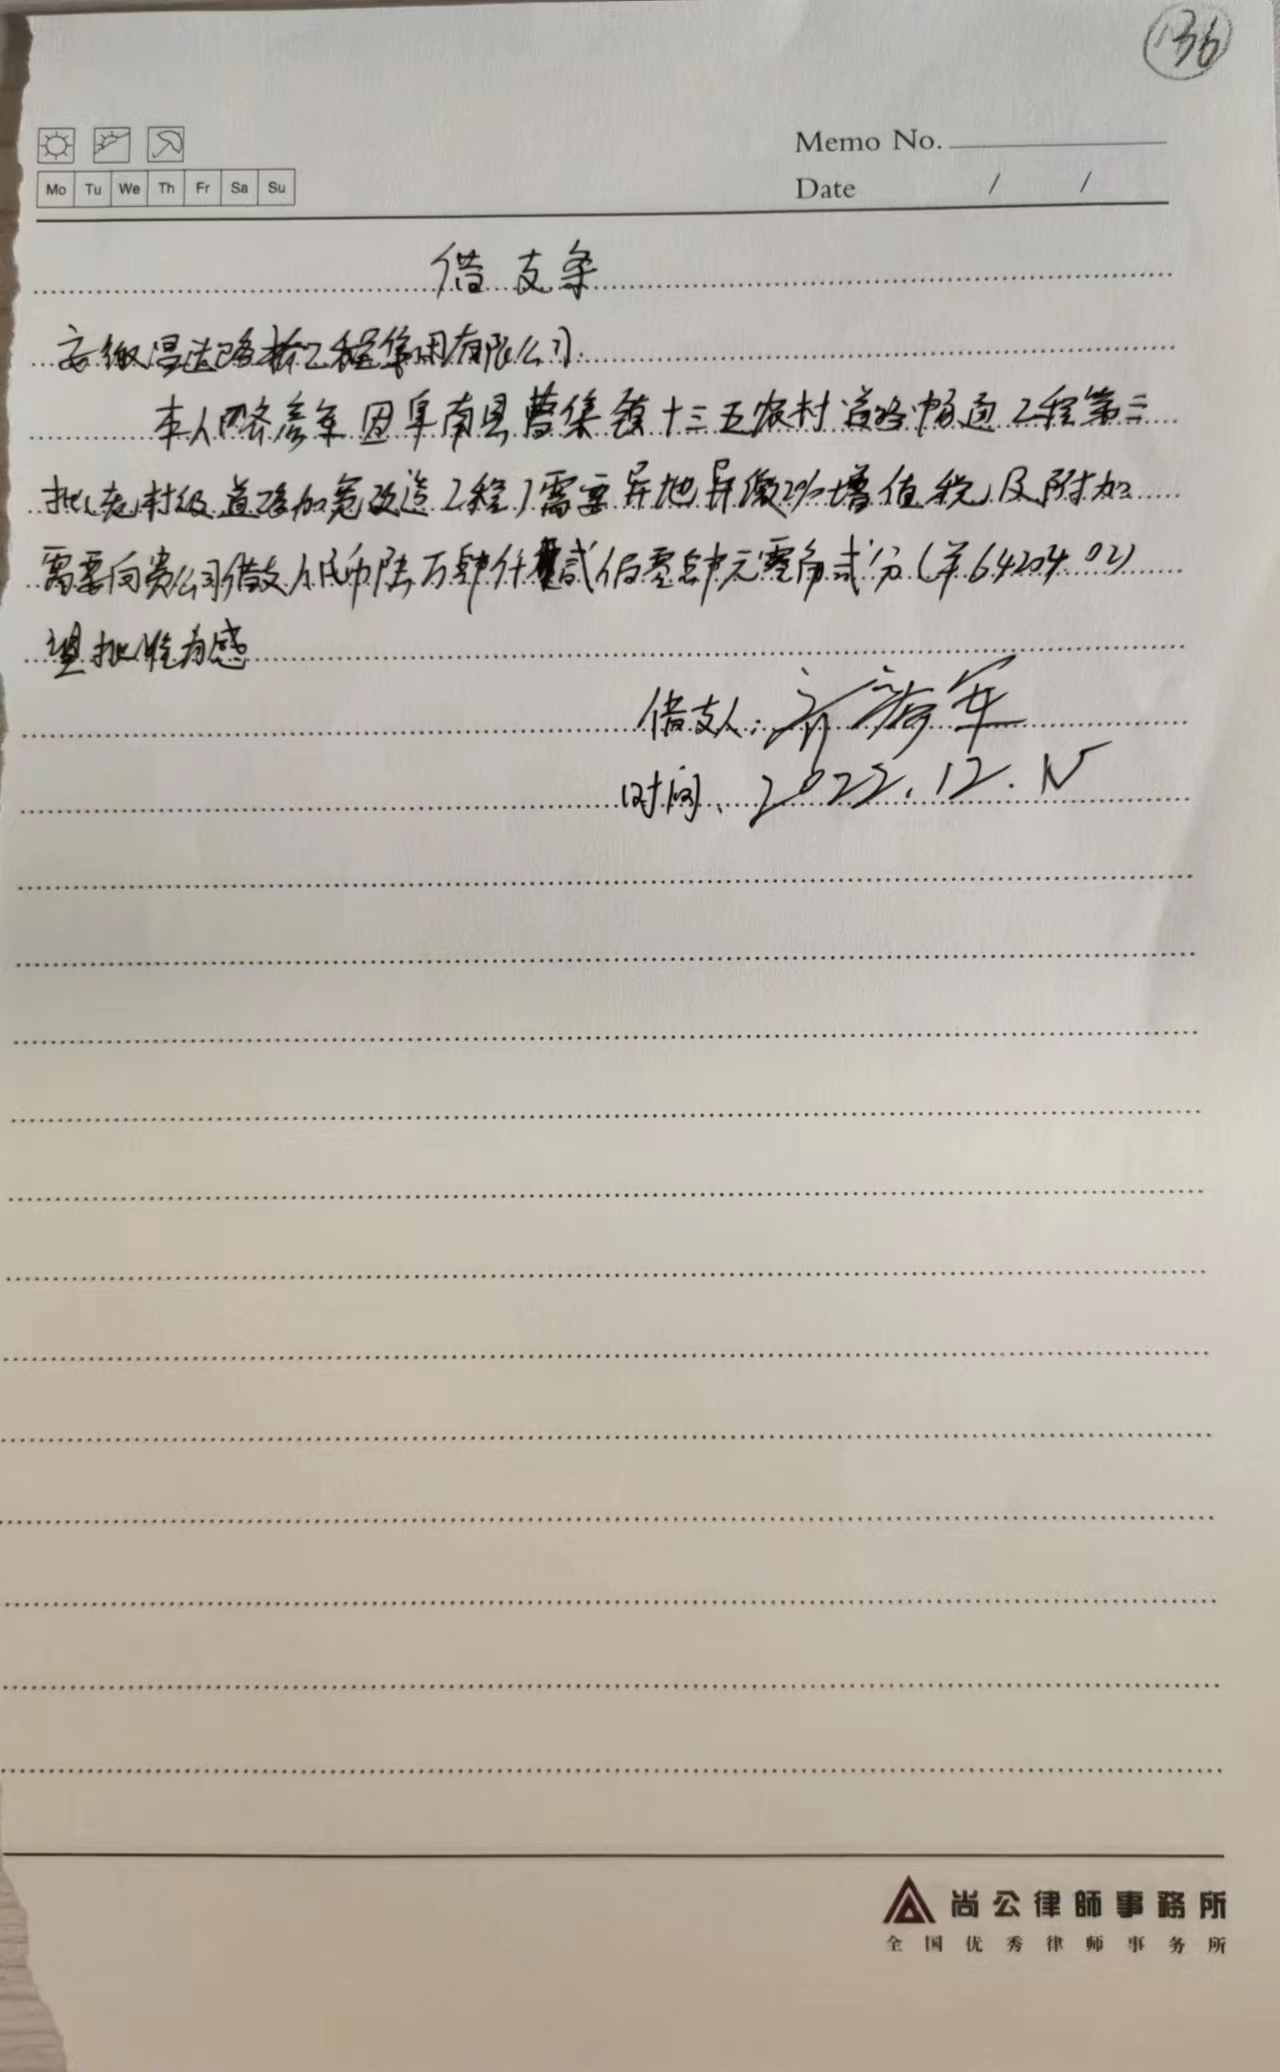 136
Memo No.
Mo Tu We Th Fr Sa Su
Date / /
借支条
安徽昌达路桥工程集团有限公司:
本人 因阜南县曹集镇十三五农村道路畅通工程第二
批(老村级道路加宽改造工程)需要异地异缴2%增值税及附加
需要向贵公司借支人民币陆万肆仟贰佰零肆元零角贰分(羊64204.02)
望批准为感
借支人: 军
时间、2022.12.
尚公律師事務所
全国优秀律师事务所